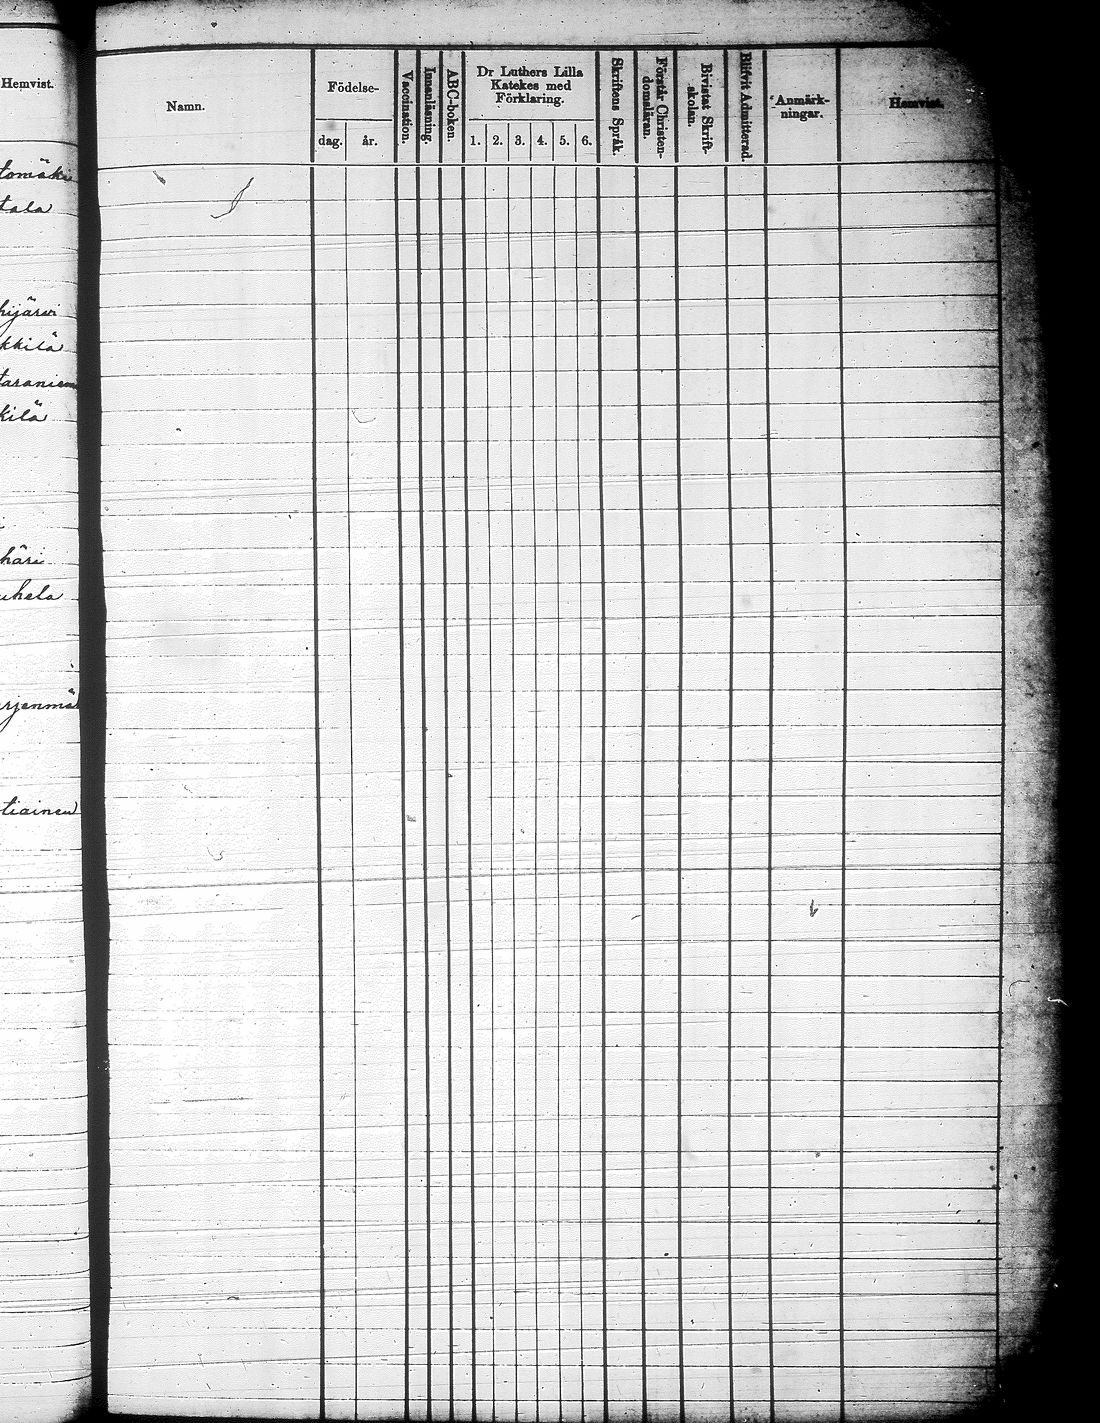 Hemvist.
tomäki
tala
hijärvi
kkilä
taraniem
kilä
häri
uhela
rjenmä
tiainen
Namn.
Födelse-
dag. år.
Vaccination.
Innanläsning.
ABC-boken.
Dr Luthers Lilla
Katekes med
Förklaring.
1. 2. 3. 4. 5. 6.
Skriftens Språk.
Förstår Christen-
domsläran.
Bivistat Skrift-
skolan.
Blifvit Admitterad.
Anmärk-
ningar.
Hemvist.